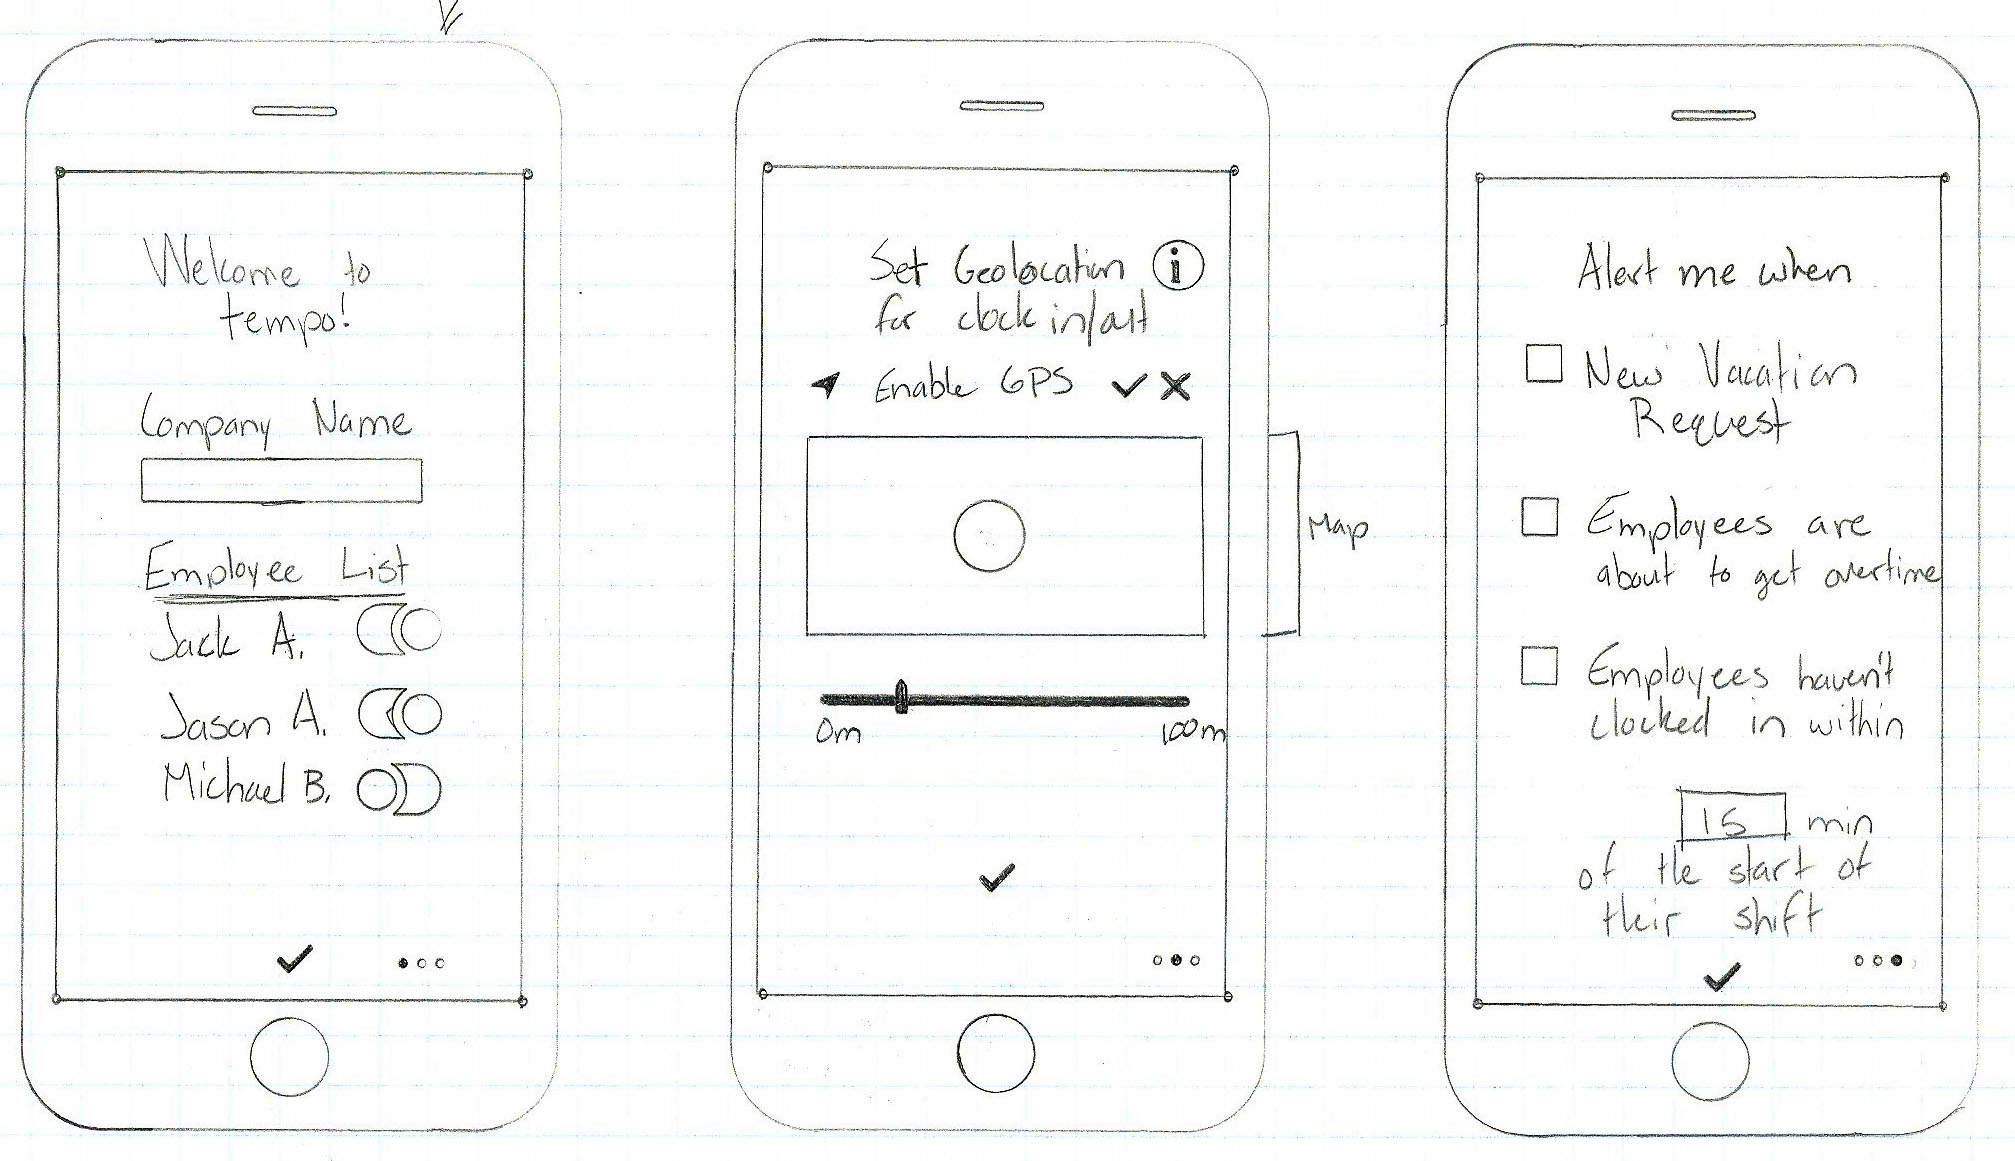 Welcome to
tempo!
Company Name
Employee List
Jack A.
Jason A.
Michael B.
Set Geolocation i
for clock in/out
Enable GPS
Map
0m
100m
Alert me when
New Vacation
Request
Employees are
about to get overtime
Employees haven't
clocked in within
15 min
of the start of
their shift